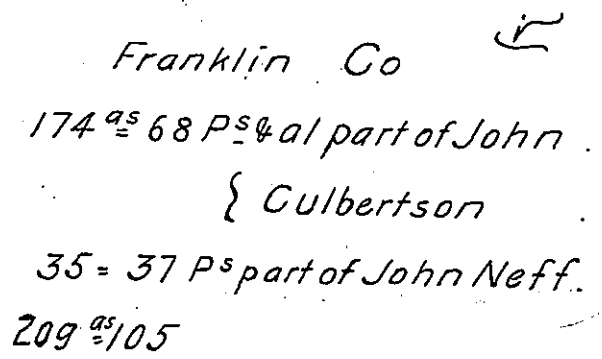 Franklin Co
174 as 68 Ps & al part of John
{ Culbertson
35 = 37 Ps part of John Neff.
209 as 105